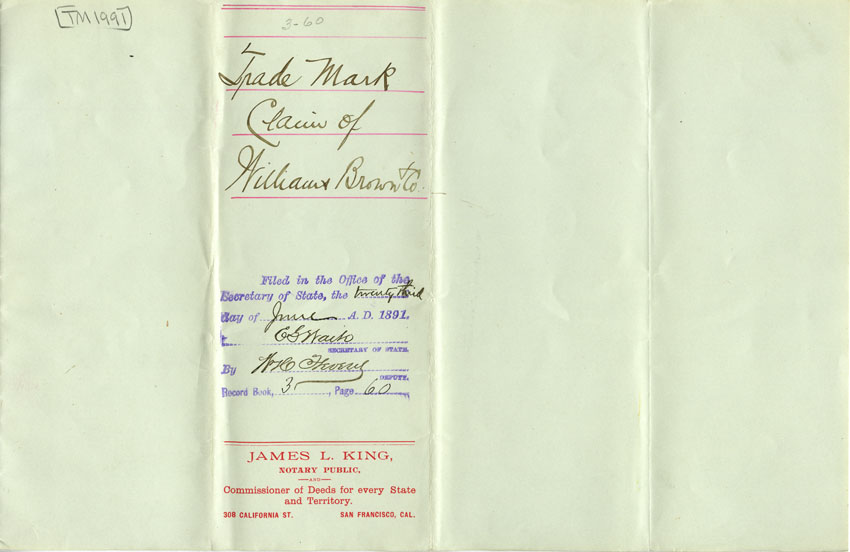 TM1991
3-60
Trade Mark
Claim of
Williams Brown & Co.
Filed in the Office of the
Secretary of State, the twenty third
day of June A. D. 1891.
E G Waite
SECRETARY OF STATE.
By W H C
DEPUTY.
Record Book, 3, Page 60
JAMES L. KING,
NOTARY PUBLIC,
—AND—
Commissioner of Deeds for every State
and Territory.
308 CALIFORNIA ST. SAN FRANCISCO, CAL.